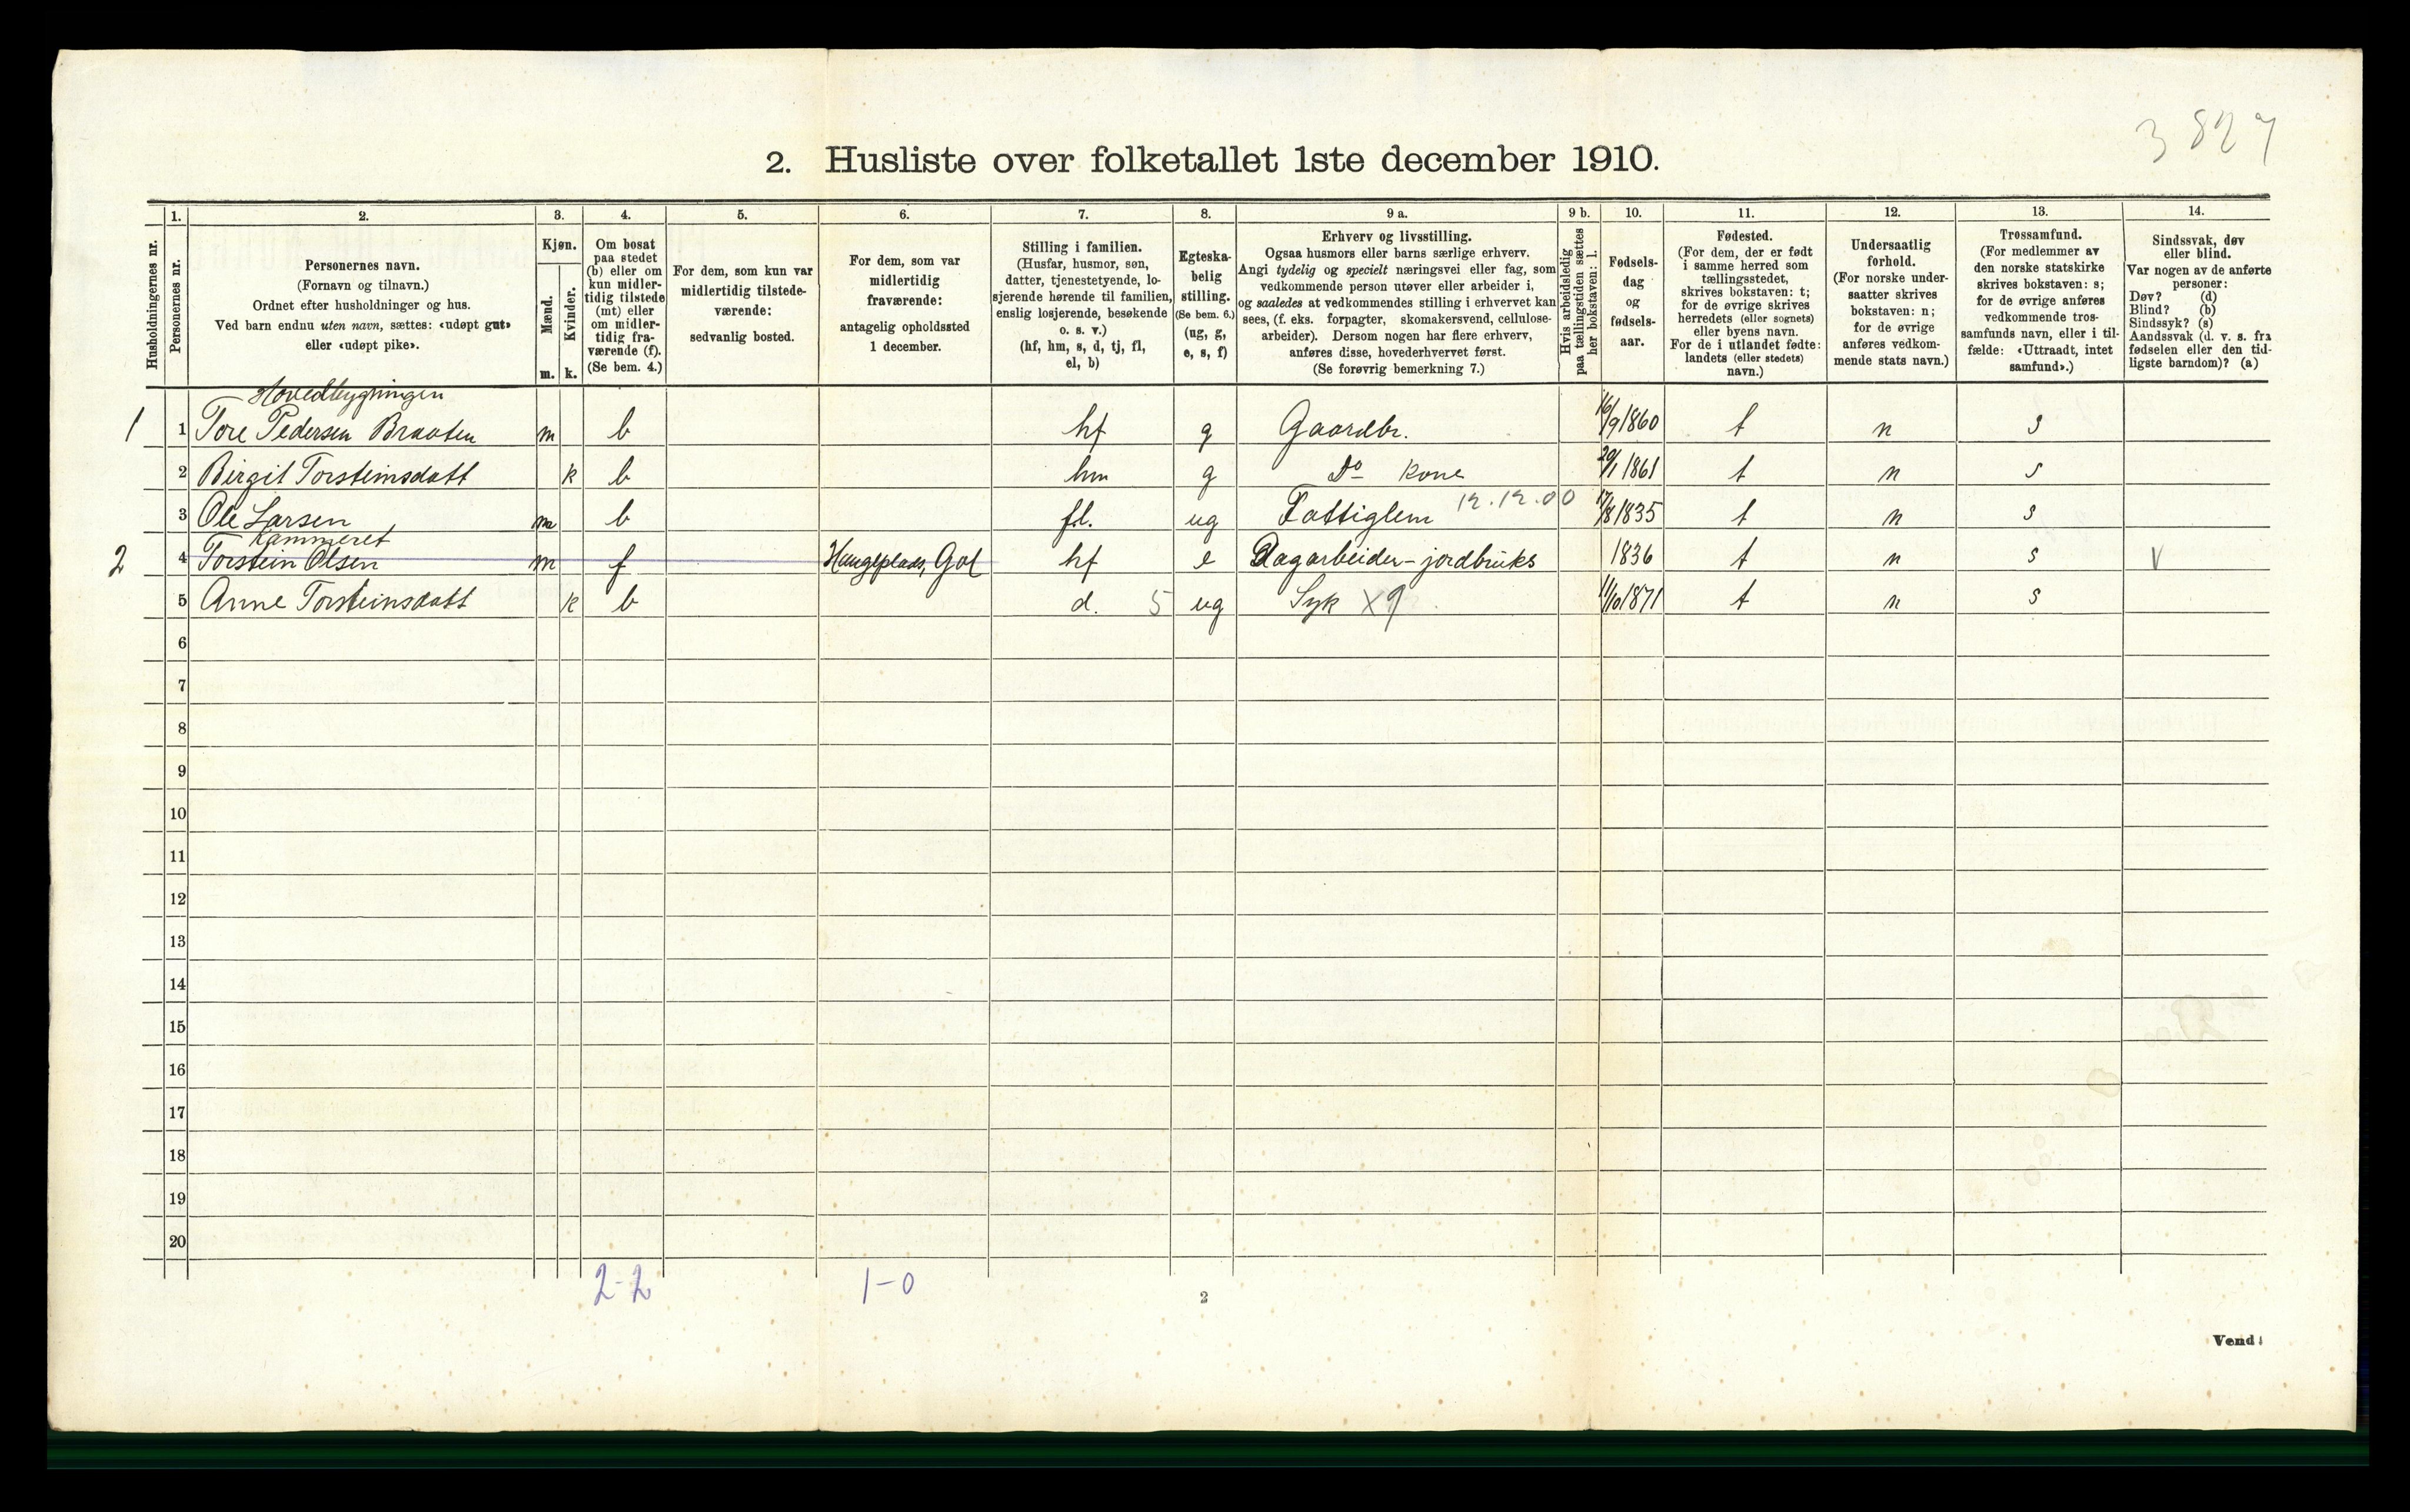 3 827
2. Husliste over folketallet 1ste december 1910.
1. 2. 3. 4. 5. 6. 7. 8. 9 a. 9 b. 10. 11. 12. 13. 14.
Husholdningernes nr.
Personernes nr.
Personernes navn.
(Fornavn og tilnavn.)
Ordnet efter husholdninger og hus.
Ved barn endnu uten navn, sættes: «udøpt gut»
eller «udøpt pike».
Kjøn.
Mænd.
Kvinder.
m. k.
Om bosat
paa stedet
(b) eller om
kun midler-
tidig tilstede
(mt) eller
om midler-
tidig fra-
værende (f).
(Se bem. 4.)
For dem, som kun var
midlertidig tilstede-
værende:
sedvanlig bosted.
For dem, som var
midlertidig
fraværende:
antagelig opholdssted
1 december.
Stilling i familien.
(Husfar, husmor, søn,
datter, tjenestetyende, lo-
sjerende hørende til familien,
enslig losjerende, besøkende
o. s. v.)
(hf, hm, s, d, tj, fl,
el, b)
Egteska-
belig
stilling.
(Se bem. 6.)
(ug, g,
e, s, f)
Erhverv og livsstilling.
Ogsaa husmors eller barns særlige erhverv.
Angi tydelig og specielt næringsvei eller fag, som
vedkommende person utøver eller arbeider i,
og saaledes at vedkommendes stilling i erhvervet kan
sees, (f. eks. forpagter, skomakersvend, cellulose-
arbeider). Dersom nogen har flere erhverv,
anføres disse, hovederhvervet først.
(Se forøvrig bemerkning 7.)
Hvis arbeidsledig
paa tællingstiden sættes
her bokstaven: l.
Fødsels-
dag
og
fødsels-
aar.
Fødested.
(For dem, der er født
i samme herred som
tællingsstedet,
skrives bokstaven: t;
for de øvrige skrives
herredets (eller sognets)
eller byens navn.
For de i utlandet fødte:
landets (eller stedets)
navn.)
Undersaatlig
forhold.
(For norske under-
saatter skrives
bokstaven: n;
for de øvrige
anføres vedkom-
mende stats navn.)
Trossamfund.
(For medlemmer av
den norske statskirke
skrives bokstaven: s;
for de øvrige anføres
vedkommende tros-
samfunds navn, eller i til-
fælde: «Uttraadt, intet
samfund».)
Sindssvak, døv
eller blind.
Var nogen av de anførte
personer:
Døv? (d)
Blind? (b)
Sindssyk? (s)
Aandssvak (d. v. s. fra
fødselen eller den tid-
ligste barndom)? (a)
Hovedbygningen
1 1 Tore Pedersen Braaten m b hf g Gaardbr. 16/9 1860 t n s
2 Birgit Torsteinsdatt k b hm g Do Kone 20/1 1861 t n s
3 Ole Larsen m b fl. ug Fattiglem 12.12.00 17/8 1835 t n s
Kammeret
2 4 Torstein Olsen m f Haugeplads, Gol hf e Dagarbeider - jordbruks 1836 t n s V
5 Anne Torsteinsdatt k b d. 5 ug Syk X9 11/10 1871 t n s
6
7
8
9
10
11
12
13
14
15
16
17
18
19
20
2-2 1-0
2
Vend!